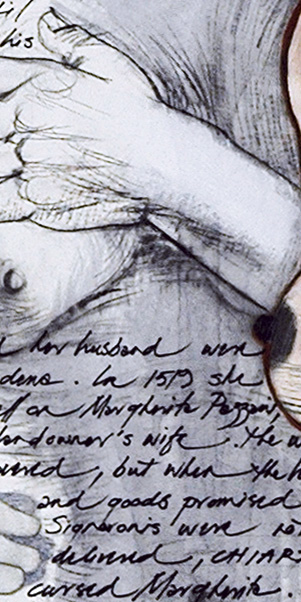 his
her husband were
. In 1519 she
on Margherita
landowner's wife . The
, but when the
and goods promised
Signoronis were
delivered , CHIAR
cursed Margherita .